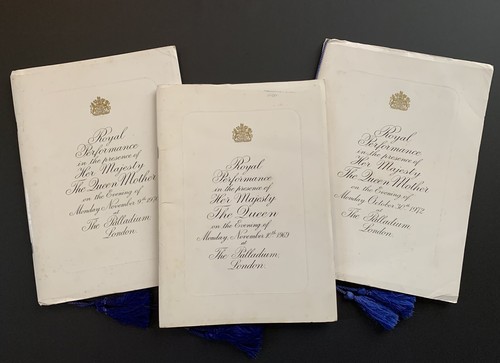 Royal
Performance
in the presence of
Her Majesty
The Queen Mother
on the Evening of
Monday November 9th
at
The Palladium
London
Royal
Performance
in the presence of
Her Majesty
The Queen
on the Evening of
Monday, November 10th 1969
at
The Palladium
London
Royal
Performance
in the presence of
Her Majesty
The Queen Mother
on the Evening of
Monday October 30th 1972
at
The Palladium
London